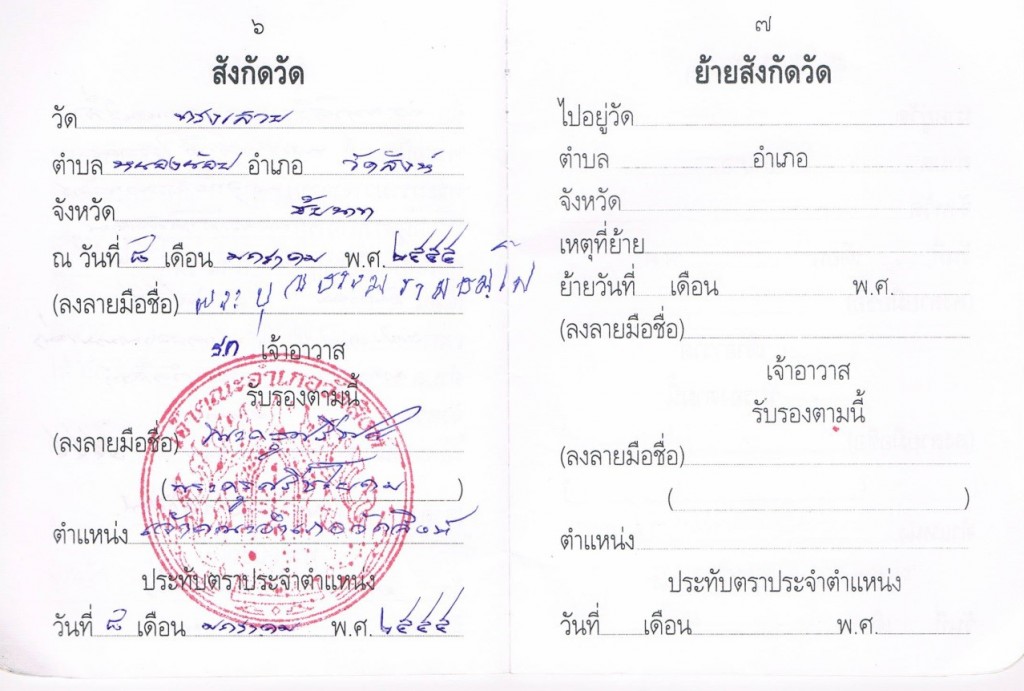 ๖
สังกัดวัด
วัด ทรงเสวย
ตำบล หนองน้อย อำเภอ วัดสิงห์
จังหวัด ชัยนาท
ณ วันที่ ๘ เดือน มกราคม พ.ศ. ๒๕๕๕
(ลงลายมือชื่อ) พระ
รก เจ้าอาวาส
เจ้าคณะอำเภอวัดสิงห์
รับรองตามนี้
(ลงลายมือชื่อ)
(พระครูศรี)
ตำแหน่ง เจ้าคณะอำเภอวัดสิงห์
ประทับตราประจำตำแหน่ง
วันที่ ๘ เดือน มกราคม พ.ศ. ๒๕๕๕
๗
ย้ายสังกัดวัด
ไปอยู่วัด
ตำบล อำเภอ
จังหวัด
เหตุที่ย้าย
ย้ายวันที่ เดือน พ.ศ.
(ลงลายมือชื่อ)
เจ้าอาวาส
รับรองตามนี้
(ลงลายมือชื่อ)
( )
ตำแหน่ง
ประทับตราประจำตำแหน่ง
วันที่ เดือน พ.ศ.